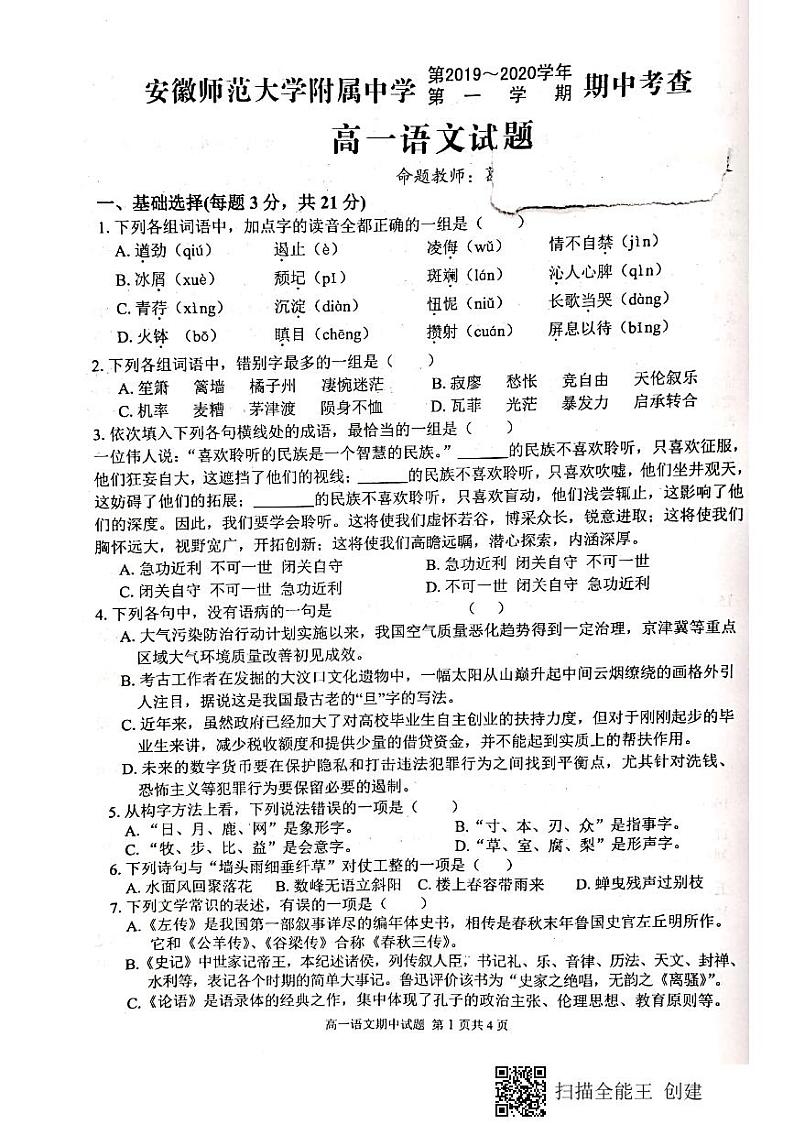 安徽师范大学附属中学 第2019～2020学年 第一学期 期中考查
高一语文试题
命题教师：
一、基础选择(每题3分，共21分)
1. 下列各组词语中，加点字的读音全都正确的一组是（ ）
A. 遒劲（qiú） 遏止（è） 凌侮（wǔ） 情不自禁（jìn）
B. 冰屑（xuè） 颓圮（pǐ） 斑斓（lán） 沁人心脾（qìn）
C. 青荇（xìng） 沉淀（diàn） 忸怩（niǔ） 长歌当哭（dàng）
D. 火钵（bō） 瞋目（chēng） 攒射（cuán） 屏息以待（bǐng）
2. 下列各组词语中，错别字最多的一组是（ ）
A. 笙箫 篱墙 橘子州 凄惋迷茫 B. 寂廖 愁怅 竞自由 天伦叙乐
C. 机率 麦糟 茅津渡 陨身不恤 D. 瓦菲 光茫 暴发力 启承转合
3. 依次填入下列各句横线处的成语，最恰当的一组是（ ）
一位伟人说：“喜欢聆听的民族是一个智慧的民族。”______的民族不喜欢聆听，只喜欢征服，
他们狂妄自大，这遮挡了他们的视线；______的民族不喜欢聆听，只喜欢吹嘘，他们坐井观天，
这妨碍了他们的拓展；______的民族不喜欢聆听，只喜欢盲动，他们浅尝辄止，这影响了他
们的深度。因此，我们要学会聆听。这将使我们虚怀若谷，博采众长，锐意进取；这将使我们
胸怀远大，视野宽广，开拓创新；这将使我们高瞻远瞩，潜心探索，内涵深厚。
A. 急功近利 不可一世 闭关自守 B. 急功近利 闭关自守 不可一世
C. 闭关自守 不可一世 急功近利 D. 不可一世 闭关自守 急功近利
4. 下列各句中，没有语病的一句是 （ ）
A. 大气污染防治行动计划实施以来，我国空气质量恶化趋势得到一定治理，京津冀等重点
区域大气环境质量改善初见成效。
B. 考古工作者在发掘的大汶口文化遗物中，一幅太阳从山巅升起中间云烟缭绕的画格外引
人注目，据说这是我国最古老的“旦”字的写法。
C. 近年来，虽然政府已经加大了对高校毕业生自主创业的扶持力度，但对于刚刚起步的毕
业生来讲，减少税收额度和提供少量的借贷资金，并不能起到实质上的帮扶作用。
D. 未来的数字货币要在保护隐私和打击违法犯罪行为之间找到平衡点，尤其针对洗钱、
恐怖主义等犯罪行为要保留必要的遏制。
5. 从构字方法上看，下列说法错误的一项是（ ）
A. “日、月、鹿、网”是象形字。 B. “寸、本、刃、众”是指事字。
C. “牧、步、比、益”是会意字。 D. “草、室、腐、梨”是形声字。
6. 下列诗句与“墙头雨细垂纤草”对仗工整的一项是（ ）
A. 水面风回聚落花 B. 数峰无语立斜阳 C. 楼上春容带雨来 D. 蝉曳残声过别枝
7. 下列文学常识的表述，有误的一项是（ ）
A.《左传》是我国第一部叙事详尽的编年体史书，相传是春秋末年鲁国史官左丘明所作。
它和《公羊传》、《谷梁传》合称《春秋三传》。
B.《史记》中世家记帝王，本纪述诸侯，列传叙人臣，书记礼、乐、音律、历法、天文、封禅、
水利等，表记各个时期的简单大事记。鲁迅评价该书为“史家之绝唱，无韵之《离骚》”。
C.《论语》是语录体的经典之作，集中体现了孔子的政治主张、伦理思想、教育原则等。
高一语文期中试题 第1页共4页
扫描全能王 创建